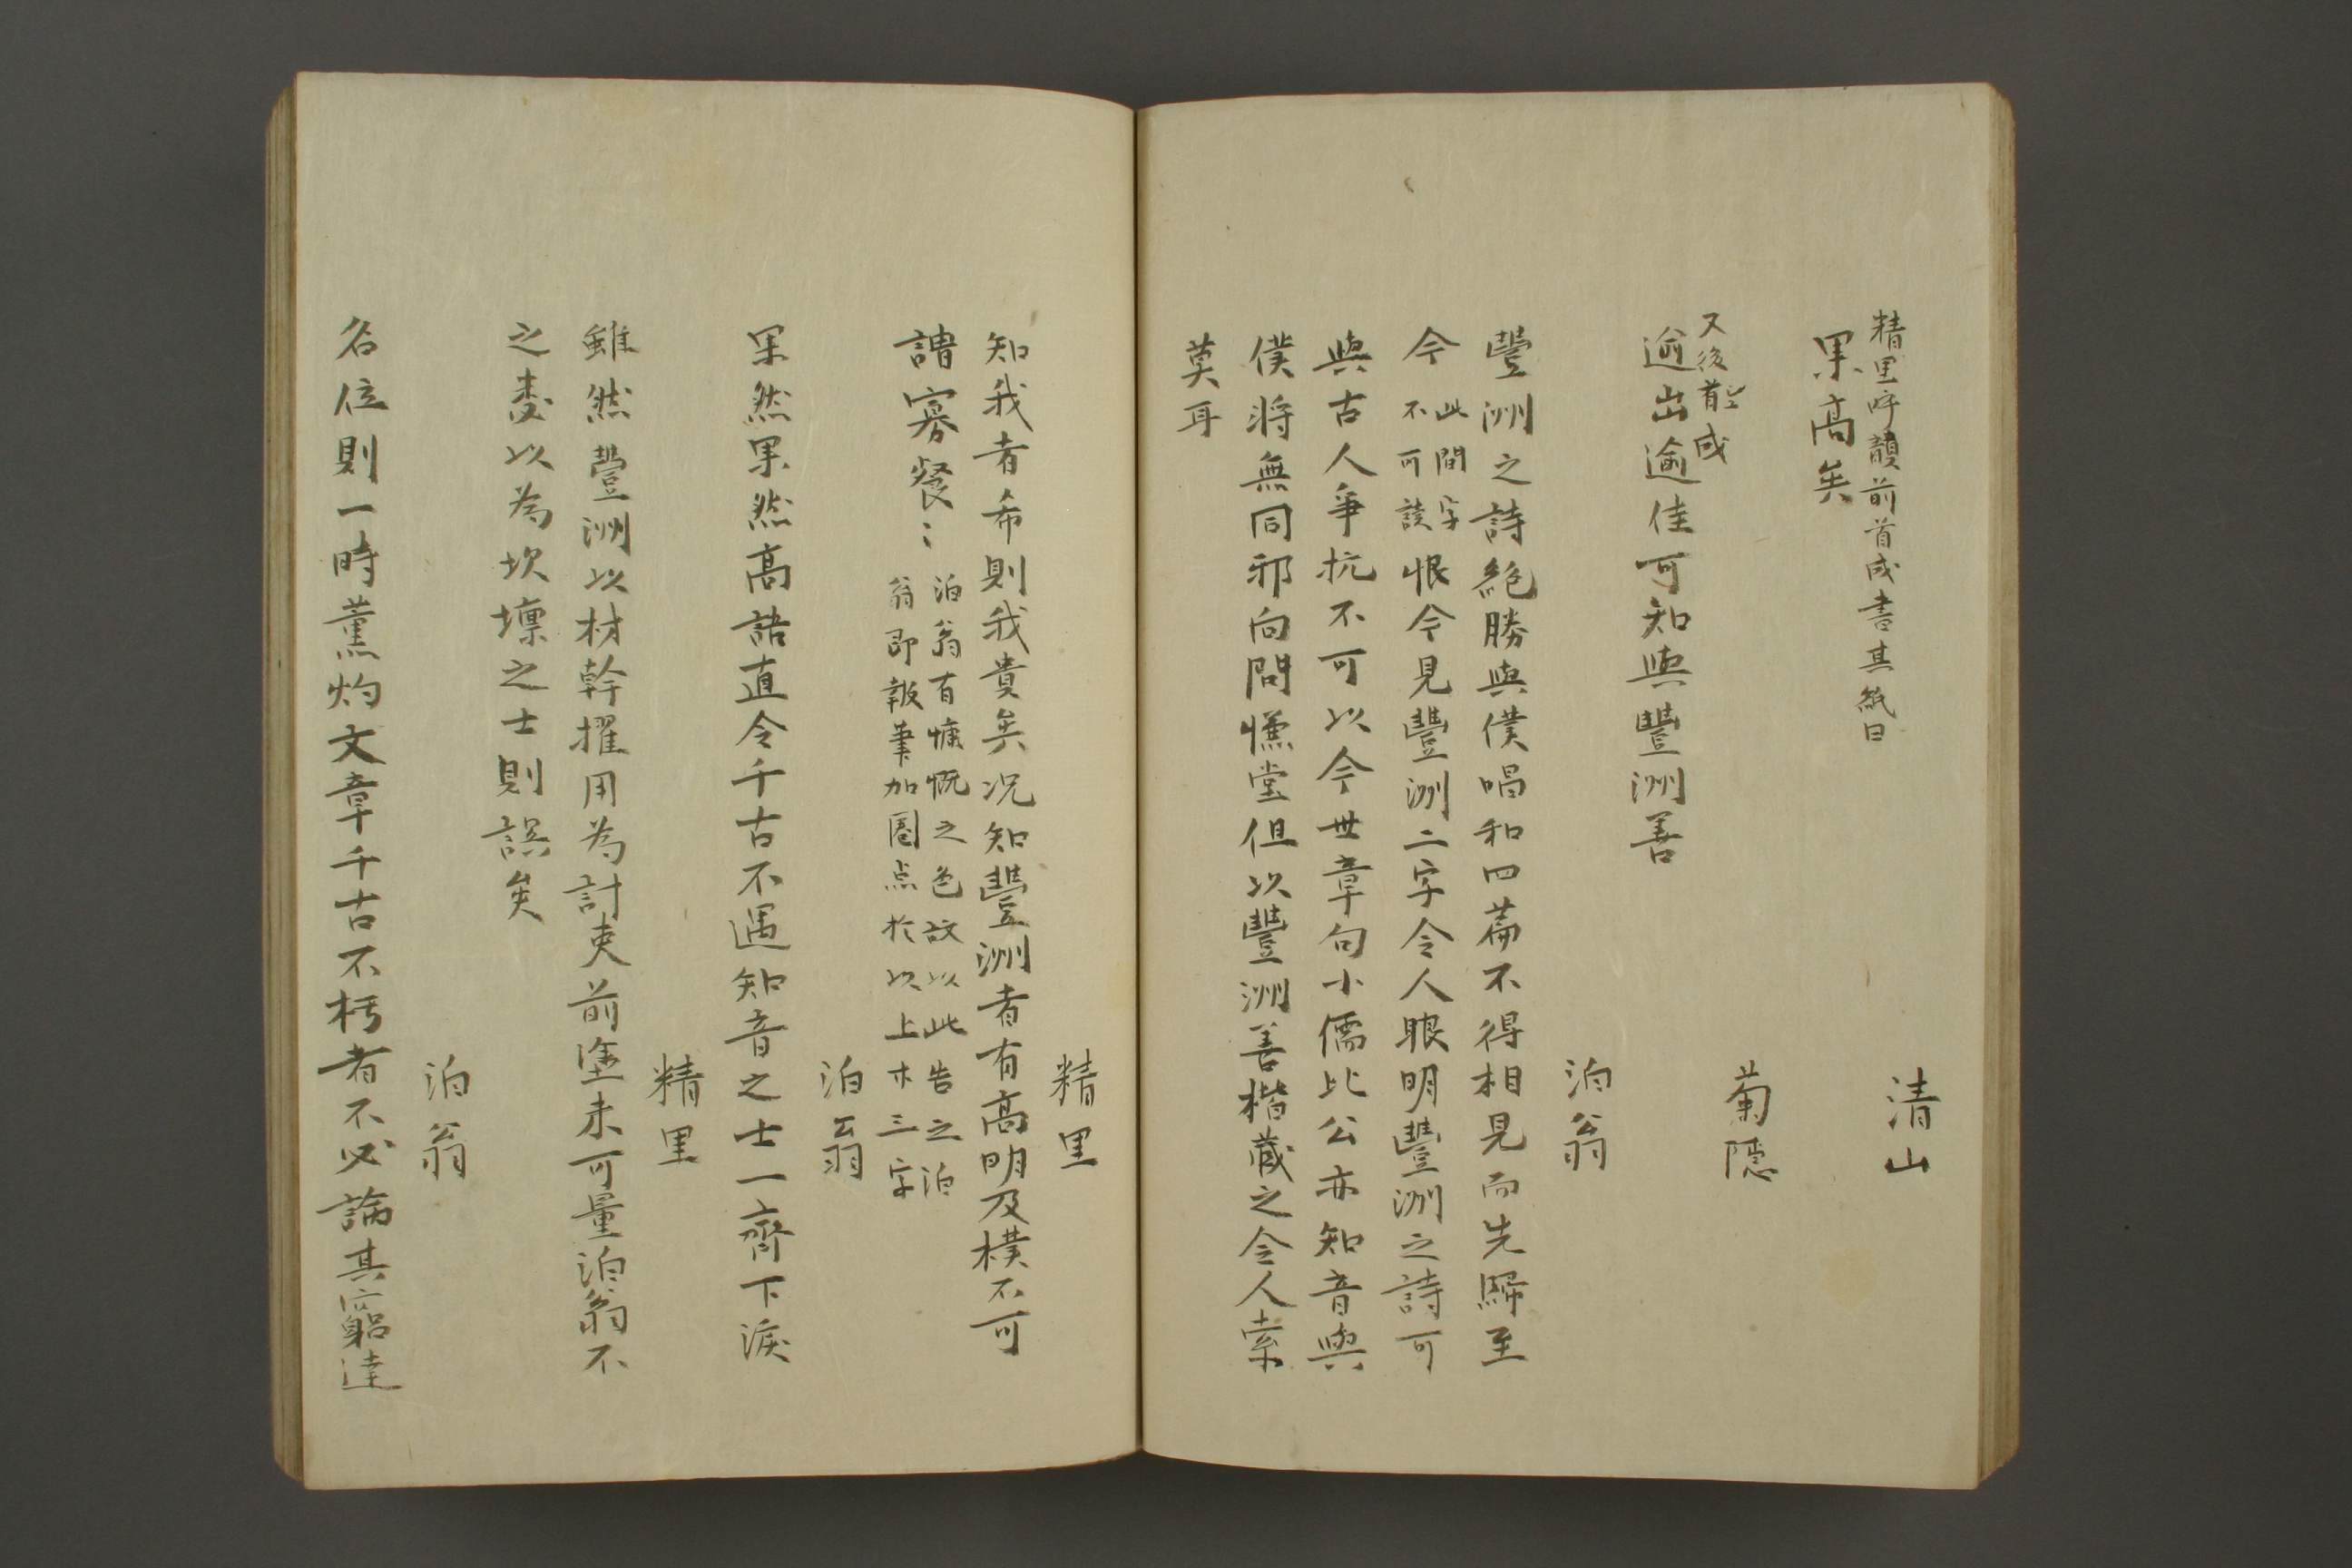 清山
精里呼韻前首成書其紙曰
果高矣
菊隠
又後首成
逾出逾佳可知與豐洲善
泊翁
豐洲之詩絶勝與僕唱和四篇不得相見而先歸至
今此間字不可讀恨今見豐洲二字令人眼明豐洲之詩可
與古人爭抗不可以今世章句小儒比公亦知音與
僕將無同邪向問慊堂但以豐洲善楷蔵之令人索
莫耳
精里
知我者希則我貴矣况知豐洲者有高明及樸不可
謂寡餐〻泊翁有慷慨之色故以此告之泊
翁即報筆加圏点於以上廿三字
泊翁
果然果然高語直令千古不遇知音之士一齊下淚
精里
雖然豐洲以材幹擢用為計吏前塗未可量泊翁不
之委以為坎壈之士則誤矣
泊翁
名位則一時薫灼文章千古不朽者不必論其窮達